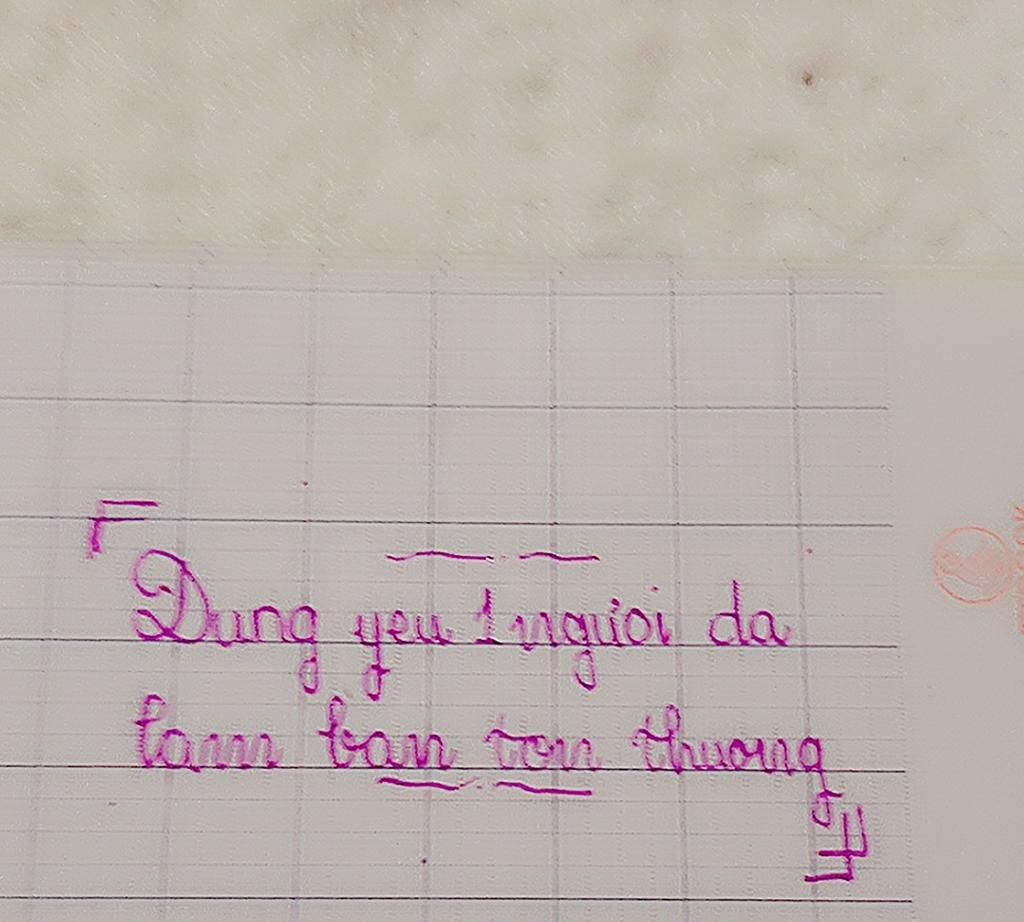 Dung yeu 1 nguoi da
lam ban ton thuong